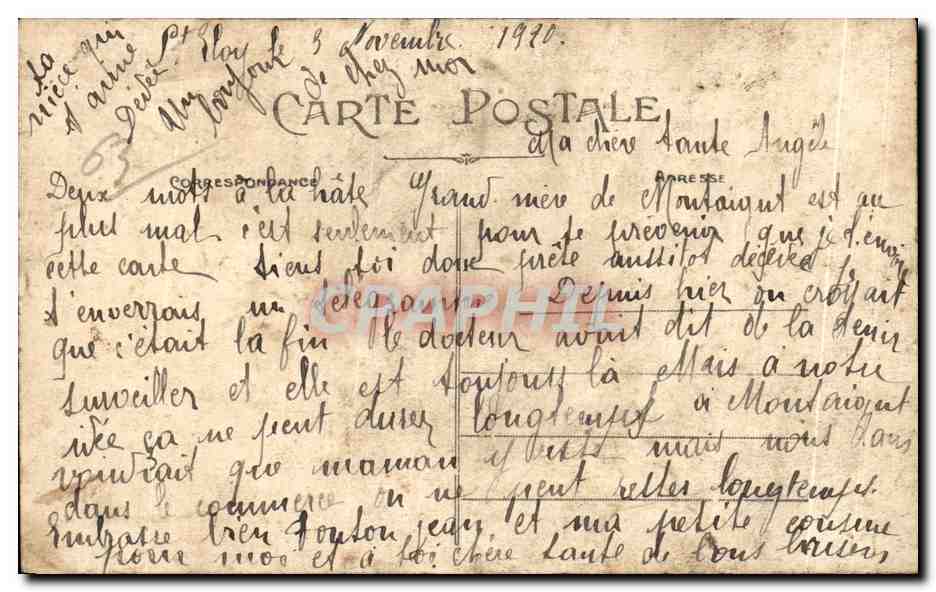 St Eloy le 3 Novembre 1920.
Ta
nièce qui
t'aime
Un bonjour
de chez moi
63
CARTE POSTALE
Ma chère tante Angèle
CORRESPONDANCE
ADRESSE
Deux mots à la hâte Grand-mère de Montaigut est au
plus mal c'est seulement pour te prévenir que je t'envoie
cette carte tiens toi donc prête aussitot décèdée je
t'enverrais un télégramme Depuis hier on croyait
que c'était la fin le docteur avait dit de la tenir
surveiller et elle est toujours là Mais à notre
idée ça ne peut durer longtemps à Montaigut
voudrait que maman y reste mais nous dans
dans le commerce on ne peut rester longtemps.
Embrasse bien Tonton jean et ma petite cousine
pour moi et à toi chère tante de bons baisers
CPAPHIL